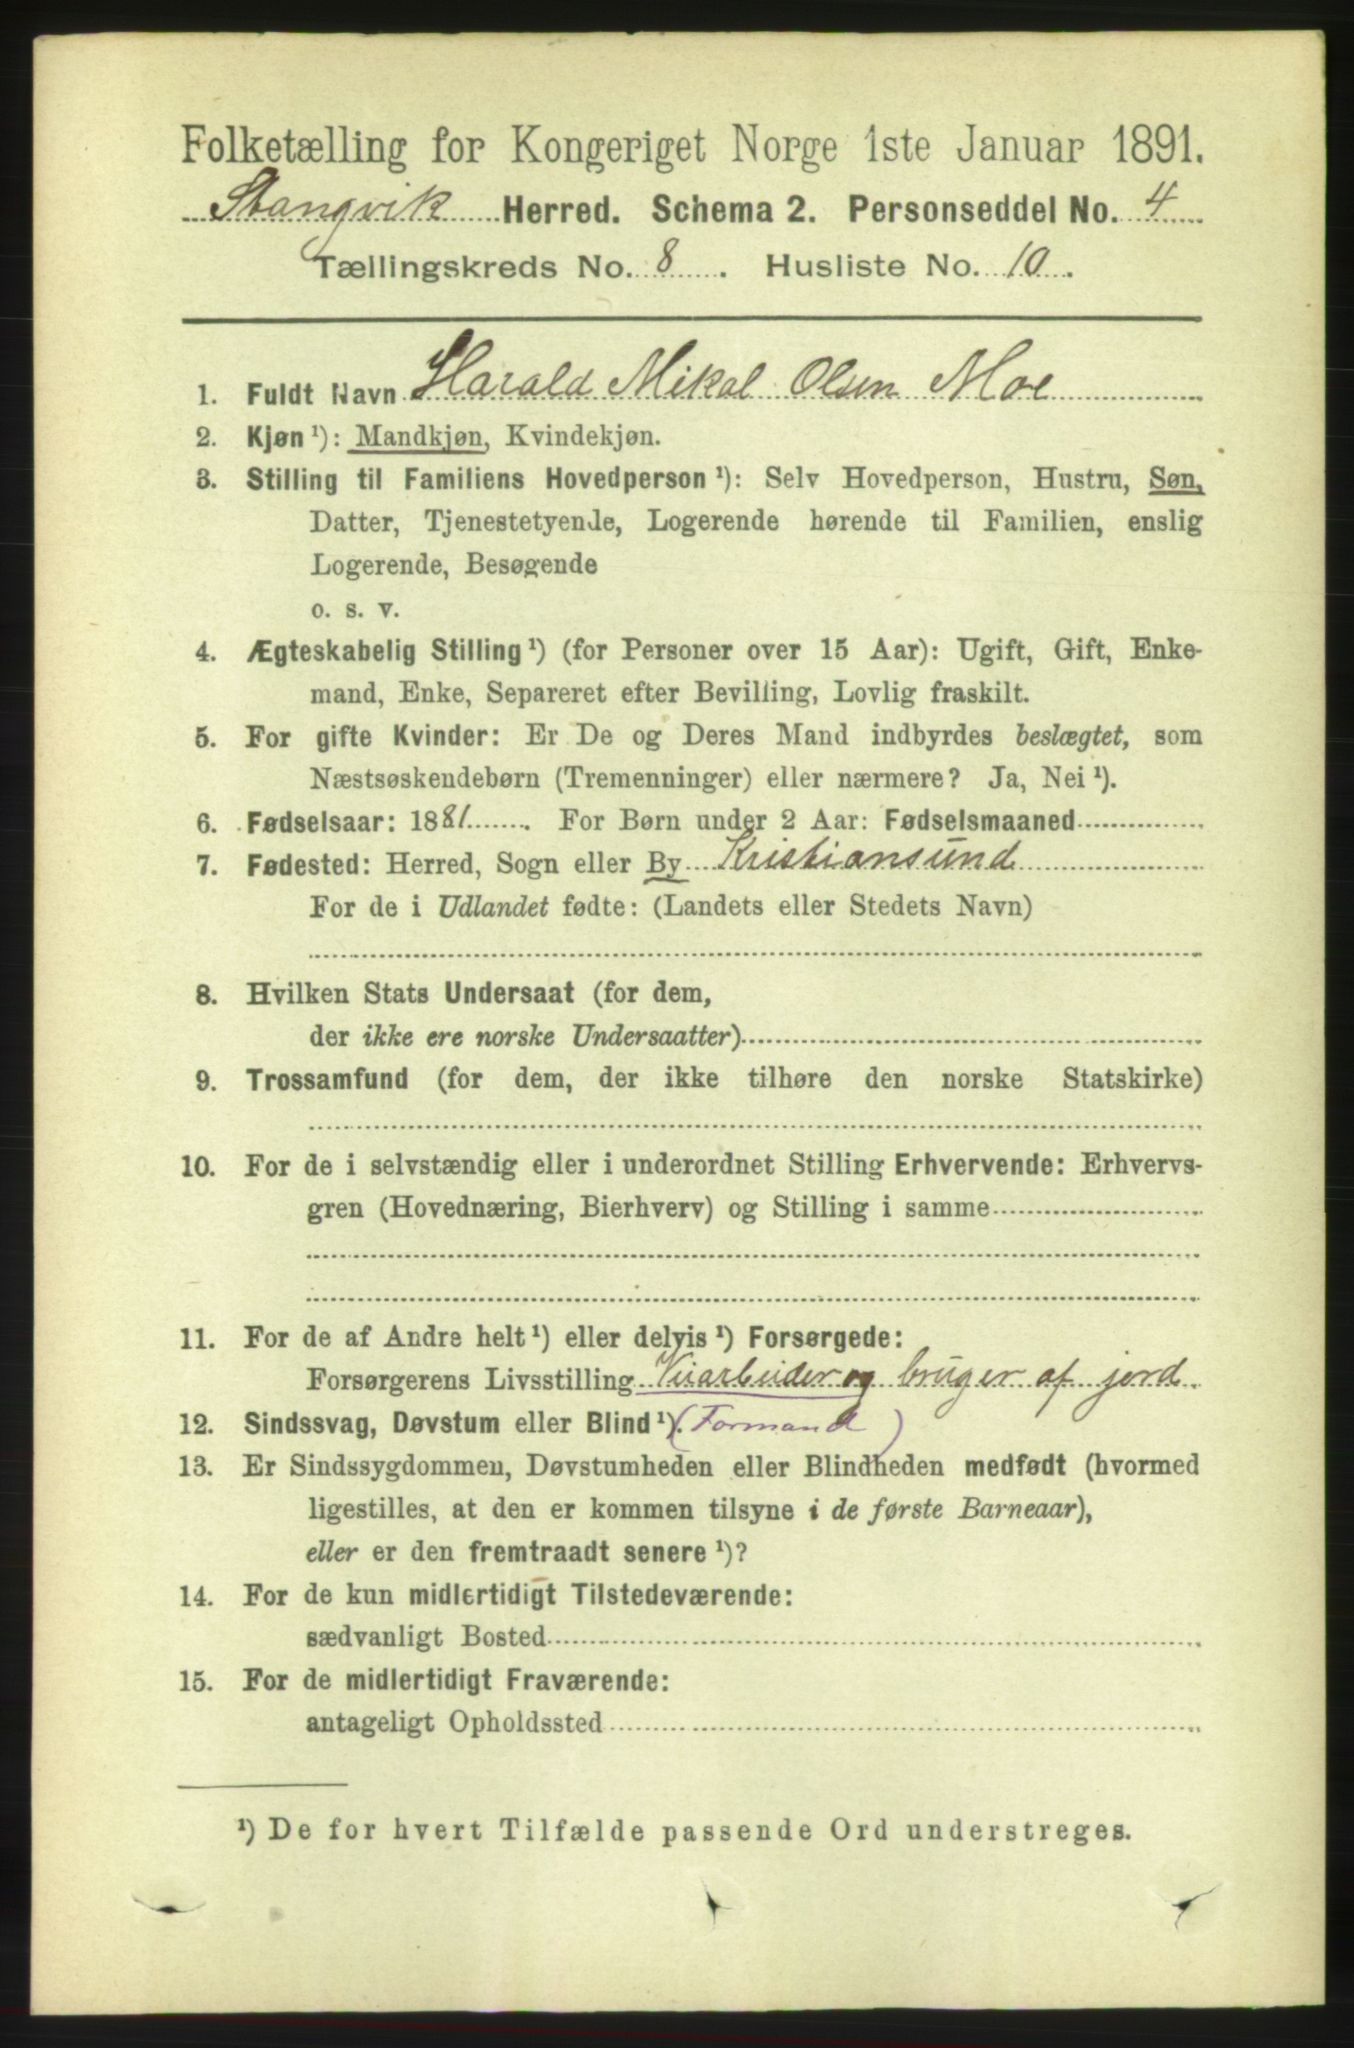 Folketælling for Kongeriget Norge 1ste Januar 1891.
Stangvik Herred. Schema 2. Personseddel No. 4
Tællingskreds No. 8. Husliste No. 10.
1. Fuldt Navn Harald Mikal Olsen Moe
2. Kjøn ¹): Mandkjøn, Kvindekjøn.
3. Stilling til Familiens Hovedperson ¹): Selv Hovedperson, Hustru, Søn,
Datter, Tjenestetyende, Logerende hørende til Familien, enslig
Logerende, Besøgende
o. s. v.
4. Ægteskabelig Stilling ¹) (for Personer over 15 Aar): Ugift, Gift, Enke-
mand, Enke, Separeret efter Bevilling, Lovlig fraskilt.
5. For gifte Kvinder: Er De og Deres Mand indbyrdes beslægtet, som
Næstsøskendebørn (Tremenninger) eller nærmere? Ja, Nei ¹).
6. Fødselsaar: 1881. For Børn under 2 Aar: Fødselsmaaned
7. Fødested: Herred, Sogn eller By Kristiansund
For de i Udlandet fødte: (Landets eller Stedets Navn)
8. Hvilken Stats Undersaat (for dem,
der ikke ere norske Undersaatter)
9. Trossamfund (for dem, der ikke tilhøre den norske Statskirke)
10. For de i selvstændig eller i underordnet Stilling Erhvervende: Erhvervs-
gren (Hovednæring, Bierhverv) og Stilling i samme
11. For de af Andre helt ¹) eller delvis ¹) Forsørgede:
Forsørgerens Livsstilling Veiarbeider og bruger af jord.
12. Sindssvag, Døvstum eller Blind ¹). (Formand)
13. Er Sindssygdommen, Døvstumheden eller Blindheden medfødt (hvormed
ligestilles, at den er kommen tilsyne i de første Barneaar),
eller er den fremtraadt senere ¹)?
14. For de kun midlertidigt Tilstedeværende:
sædvanligt Bosted
15. For de midlertidigt Fraværende:
antageligt Opholdssted
¹) De for hvert Tilfælde passende Ord understreges.